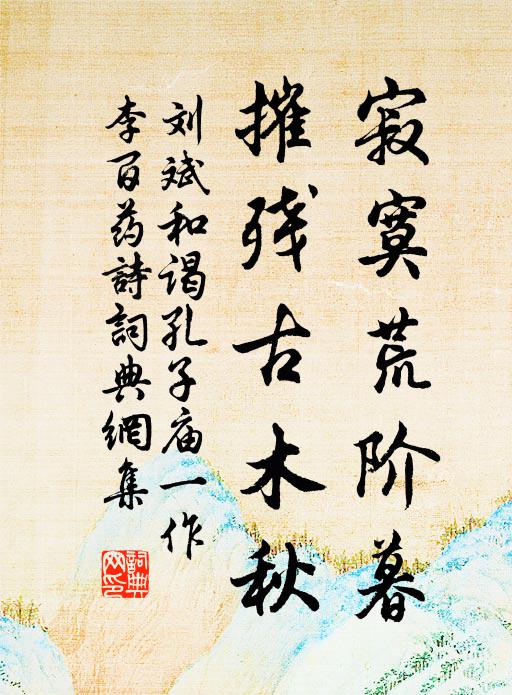 寂寞荒阶暮
摧残古木秋
刘斌和谒孔子庙一作
李百药詩詞典網集
詞典网印